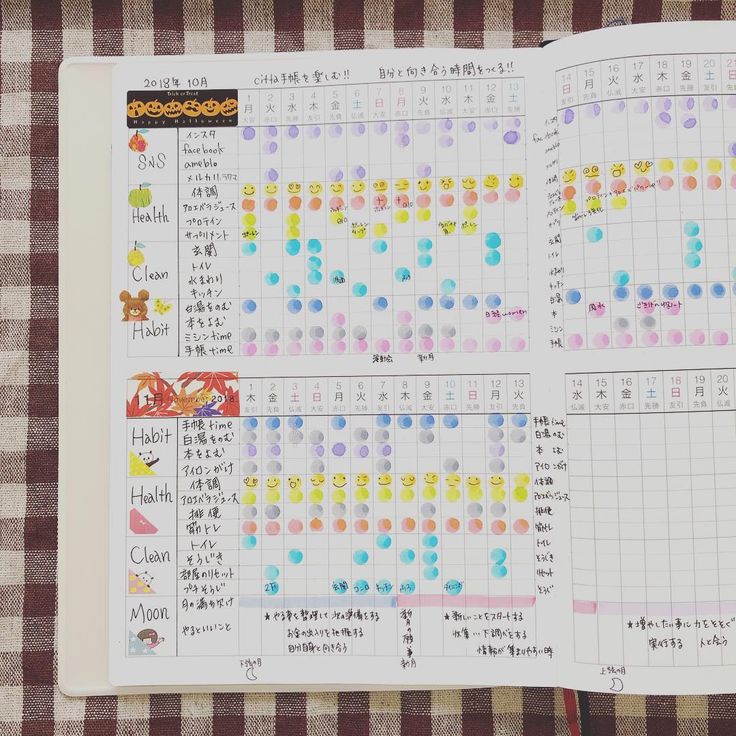 2018年 10月
citta手帳を楽しむ!! 自分と向き合う時間をつくる!!
Trick or Treat
Happy Halloween
1 2 3 4 5 6 7 8 9 10 11 12 13
月 火 水 木 金 土 日 月 火 水 木 金 土
SNS
インスタ
facebook
ameblo
メルカリ/ラクマ
Health
体調
アロエベラジュース
プロテイン
サプリメント
Clean
玄関
トイレ
水まわり
キッチン
Habit
白湯をのむ
本をよむ
ミシンtime
手帳time
日経women
運動会
新月
14 15 16 17 18 19 20 21
日 月 火 水 木 金 土
友引 先負 仏滅 大安 赤口 先勝 友引 先負
インスタ
facebook
玄関
トイレ
水まわり
キッチン
白湯
本
ミシン
手帳
風水
11月 November 2018
1 2 3 4 5 6 7 8 9 10 11 12 13
木 金 土 日 月 火 水 木 金 土 日 月 火
友引 先負 仏滅 大安 赤口 先勝 友引 仏滅 大安 赤口 先勝 友引 先負
Habit
手帳time
白湯をのむ
本をよむ
アイロンがけ
Health
体調
アロエベラジュース
排便
筋トレ
Clean
トイレ
そうじき
部屋のリセット
プチそうじ
2F
玄関
コンロ
キッチン
Moon
月の満ち欠け
やるといいこと
★やる事を整理して次の準備をする
お金の出入りを把握する
自分自身と向き合う
新月の願い事
新月
★新しいことをスタートする
収集…下調べをする
情報が集まりやすい時
下弦の月
14 15 16 17 18 19 20
水 木 金 土 日 月 火
仏滅 大安 赤口 先勝 友引 先負 仏滅
手帳time
白湯をのむ
本よむ
アイロンがけ
体調
アロエベラジュース
排便
筋トレ
トイレ
そうじき
リセット
★増やしたい事に力をそそぐ
実行する 人と会う
上弦の月